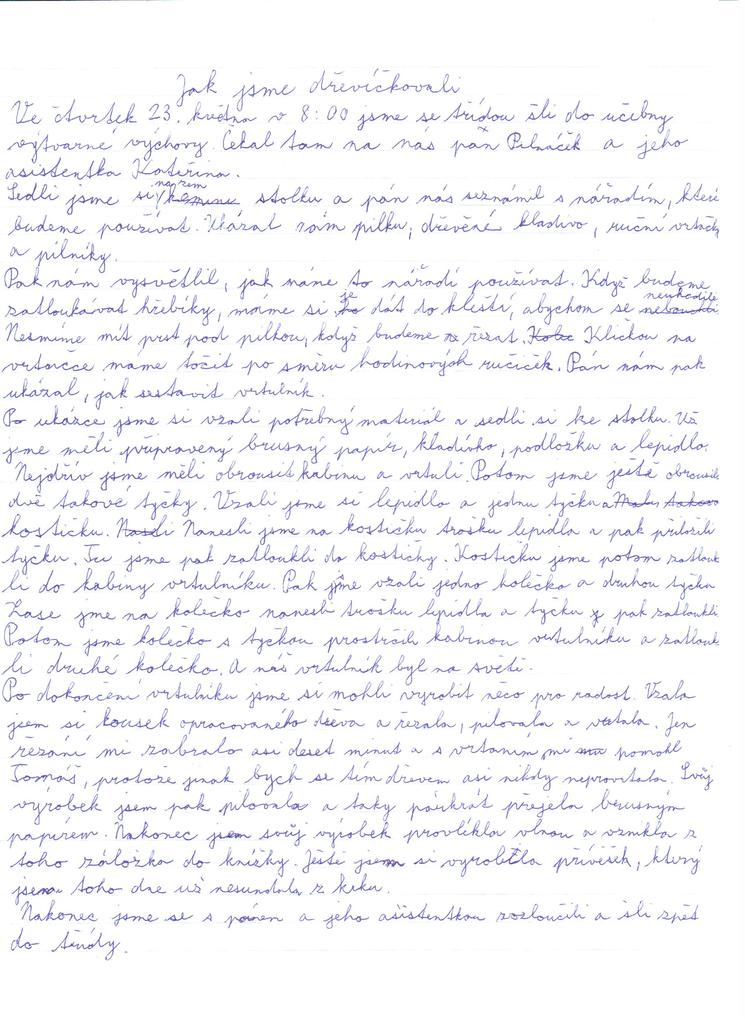 Jak jsme dřevíčkovali
Ve čtvrtek 23. května v 8:00 jsme se třídou šli do učebny
výtvarné výchovy. Čekal tam na nás pán Pilnáček a jeho
asistentka Kateřina.
Sedli jsme si ke stolku a pán nás seznámil s nářadím, které
budeme používat. Ukázal nám pilku, dřevěné kladivo, ruční vrtačky
a pilníky.
Pak nám vysvětlil, jak máme to nářadí používat. Když budeme
zatloukávat hřebíky, máme si je dát do kleští, abychom se neuhodili.
Nesmíme mít prst pod pilkou, když budeme řezat. Kličkou na
vrtačce máme točit po směru hodinových ručiček. Pán nám pak
ukázal, jak sestavit vrtulník.
Po ukázce jsme si vzali potřebný materiál a sedli si ke stolku. Už
jsme měli připravený brusný papír, kladívko, podložku a lepidlo.
Nejdřív jsme měli obrousit kabinu a vrtuli. Potom jsme ještě obrousili
dvě takové tyčky. Vzali jsme si lepidlo a jednu tyčku a
kostičku. Nanesli jsme na kostičku trošku lepidla a pak přiložili
tyčku. Tu jsme pak zatloukli do kostičky. Kostičku jsme potom zatlouk
li do kabiny vrtulníku. Pak jsme vzali jedno kolečko a druhou tyčku
Zase jme na kolečko nanesli trošku lepidla a tyčku pak zatloukli.
Potom jsme kolečko s tyčkou prostrčili kabinou vrtulníku a zatlouk
li druhé kolečko. A náš vrtulník byl na světě.
Po dokončení vrtulníku jsme si mohli vyrobit něco pro radost. Vzala
jsem si kousek opracovaného dřeva a řezala, pilovala a vrtala. Jen
řezání mi zabralo asi deset minut a s vrtáním mi pomohl
Tomáš, protože jinak bych se tím dřevem asi nikdy neprovrtala. Svůj
výrobek jsem pak pilovala a taky párkrát přejela brusným
papírem. Nakonec jsem svůj výrobek provlíkla vlnou a vznikla z
toho záložka do knížky. Ještě jsem si vyrobila přívěšek, který
jsem toho dne už nesundala z krku.
Nakonec jsme se s pánem a jeho asistentkou rozloučili a šli zpět
do třídy.